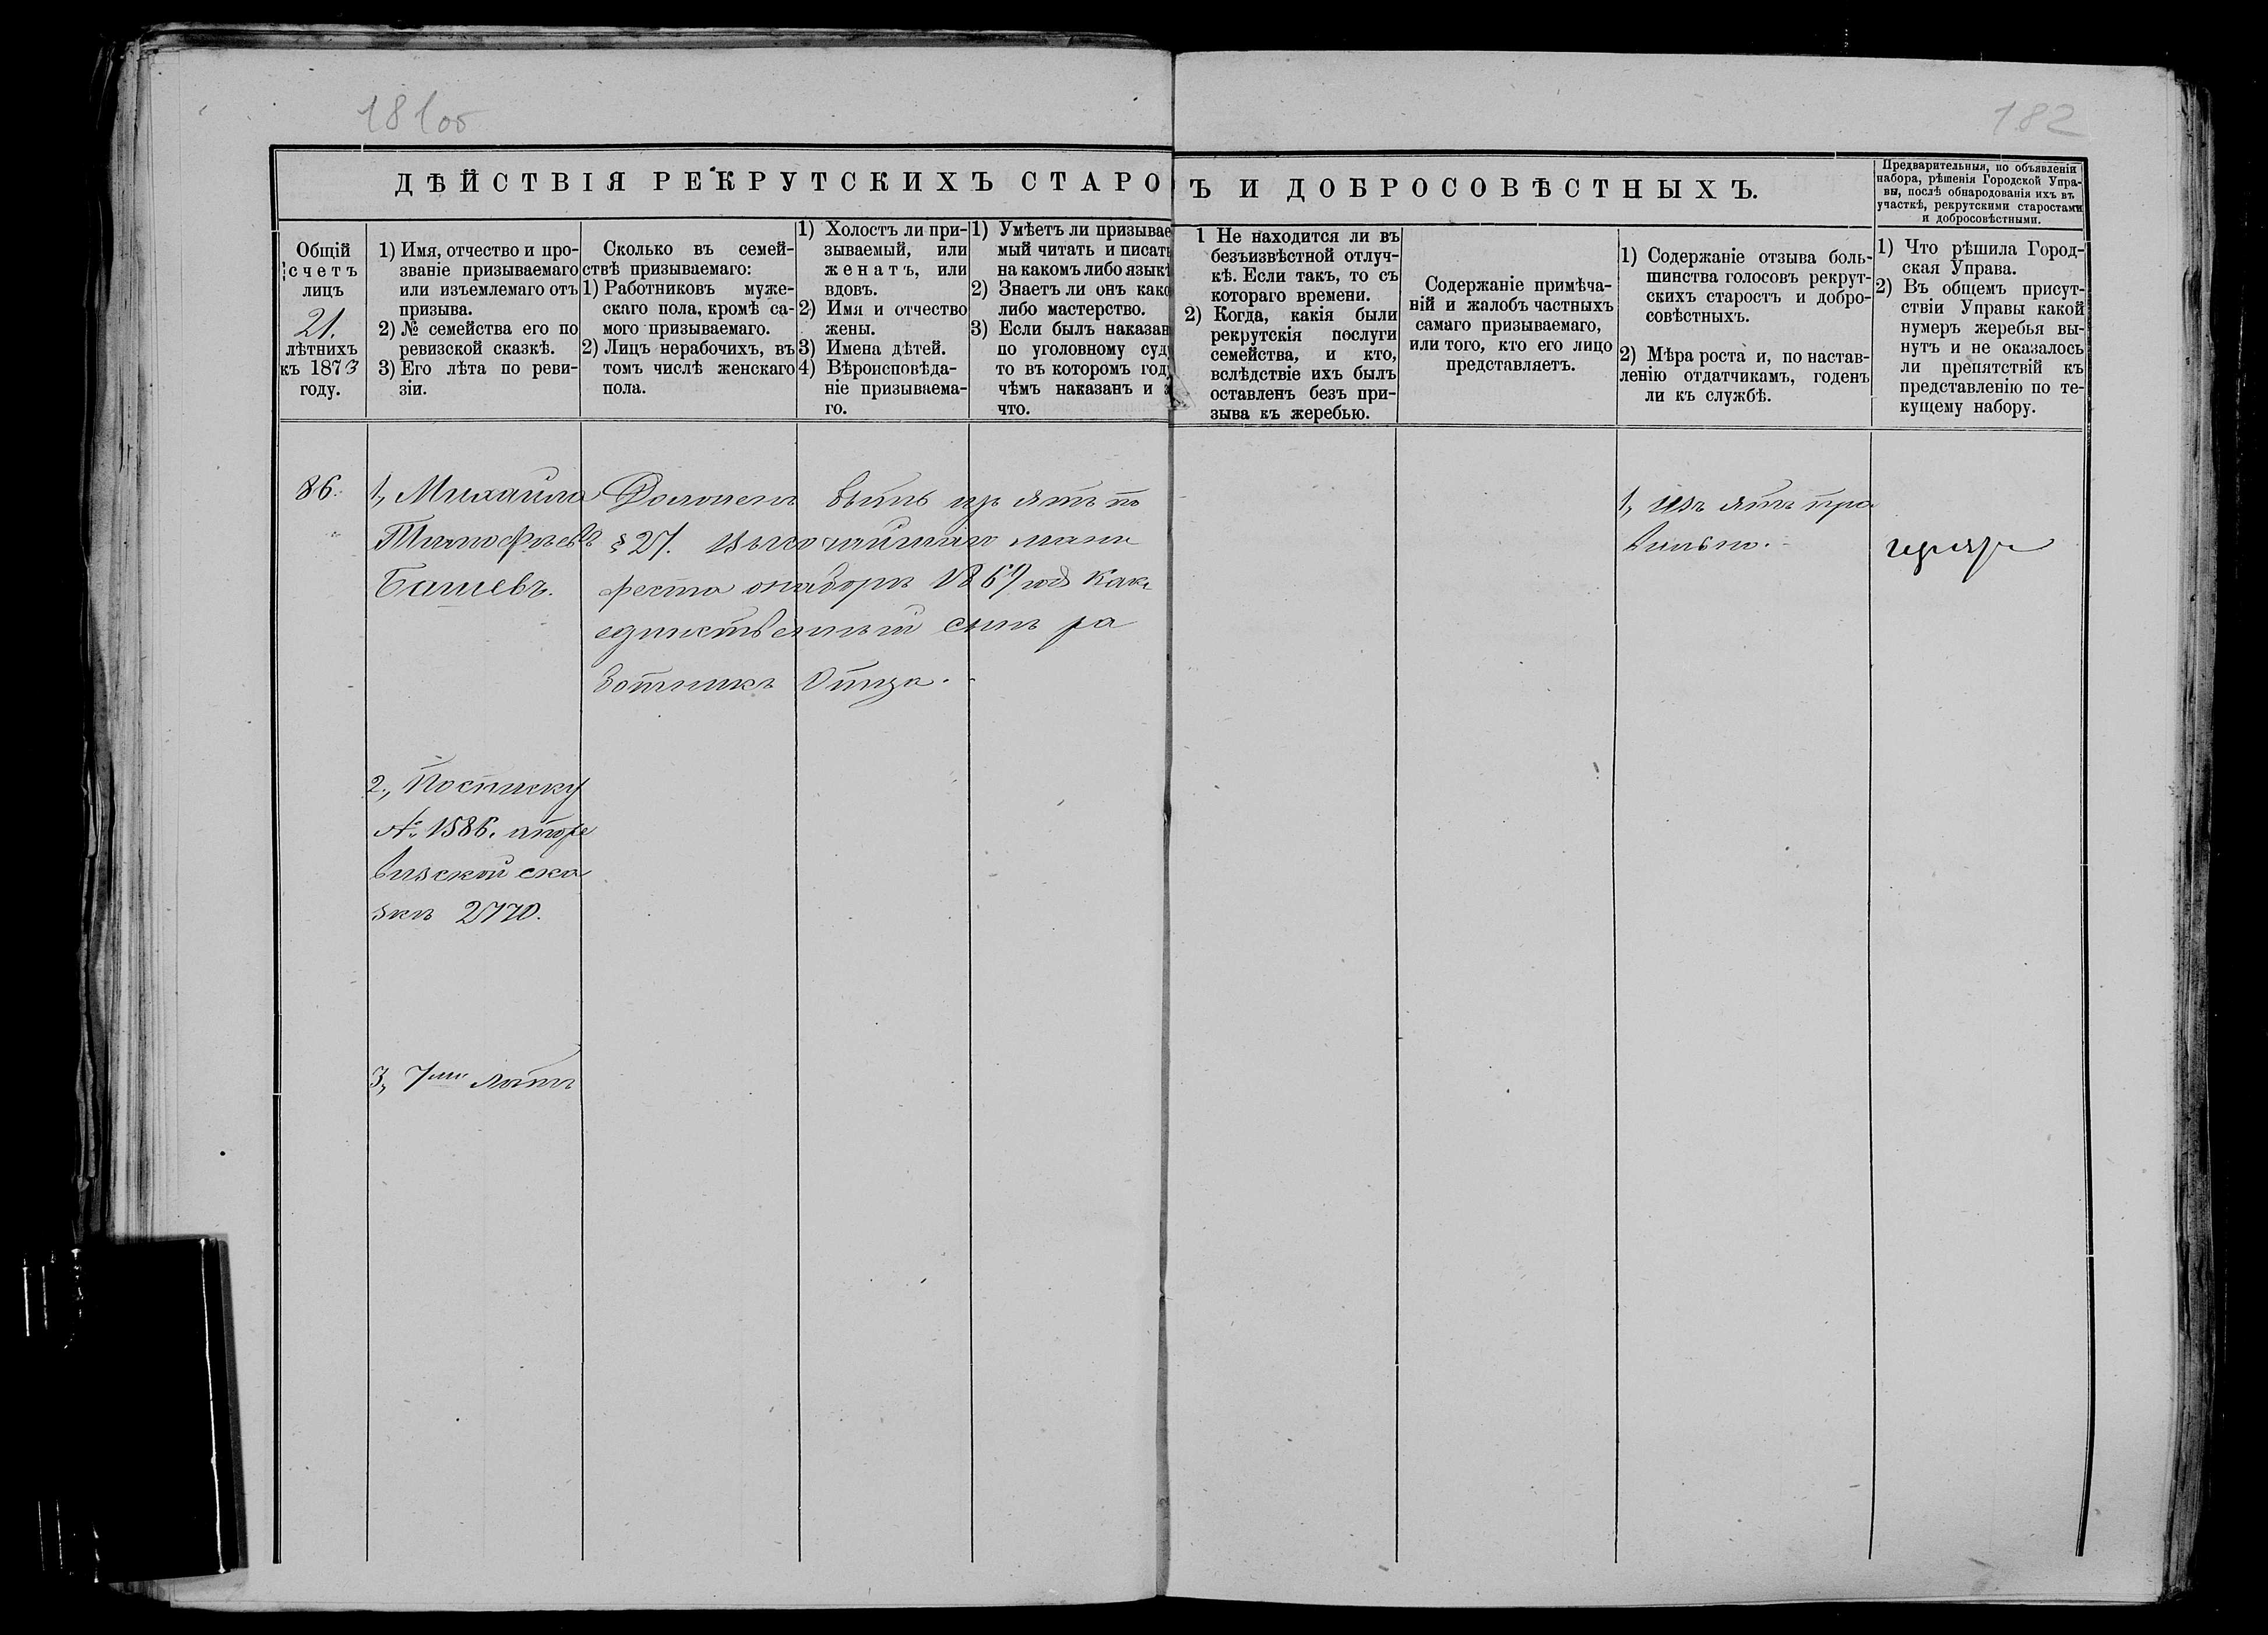 181об
182
ДѢЙСТВІЯ РЕКРУТСКИХЪ СТАРО
Ъ И ДОБРОСОВѢСТНЫХЪ.
Предварительныя, по объявленіи
набора, рѣшенія Городской Упра-
вы, послѣ обнародованія ихъ въ
участкѣ, рекрутскими старостами
и добросовѣстными.
Общій
счетъ
лицъ
21.
лѣтнихъ
къ 1873
году.
1) Имя, отчество и про-
званіе призываемаго
или изъемлемаго отъ
призыва.
2) № семейства его по
ревизской сказкѣ.
3) Его лѣта по реви-
зіи.
Сколько въ семей-
ствѣ призываемаго:
1) Работниковъ муже-
скаго пола, кромѣ са-
мого призываемаго.
2) Лицъ нерабочихъ, въ
томъ числѣ женскаго
пола.
1) Холостъ ли при-
зываемый, или
женатъ, или
вдовъ.
2) Имя и отчество
жены.
3) Имена дѣтей.
4) Вѣроисповѣда-
ніе призываема-
го.
1) Умѣетъ ли призывае
мый читать и писать
на какомъ либо языкѣ
2) Знаетъ ли онъ како
либо мастерство.
3) Если былъ наказан
по уголовному суд
то въ которомъ год
чѣмъ наказанъ и з
что.
1 Не находится ли въ
безъизвѣстной отлуч-
кѣ. Если такъ, то съ
котораго времени.
2) Когда, какія были
рекрутскія послуги
семейства, и кто,
вслѣдствіе ихъ былъ
оставленъ безъ при-
зыва къ жеребью.
Содержаніе примѣча-
ній и жалобъ частныхъ
самаго призываемаго,
или того, кто его лицо
представляетъ.
1) Содержаніе отзыва боль-
шинства голосовъ рекрут-
скихъ старостъ и добро-
совѣстныхъ.
2) Мѣра роста и, по настав-
ленію отдатчикамъ, годенъ
ли къ службѣ.
1) Что рѣшила Город-
ская Управа.
2) Въ общемъ присут-
ствіи Управы какой
нумеръ жеребья вы-
нутъ и не оказалось
ли препятствій къ
представленію по те-
кущему набору.
86.
1, Михаила
Тимофѣевъ
Башевъ.
Долженъ быть изъятъ по
§ 27. Высочайшаго мани
феста о наборѣ 1869 года какъ
единственный сынъ ра
ботникъ Отца.
2, По списку
№ 1586. а по ре
визской ска
зкѣ 2770.
3, 7ми лѣтъ
1, Изъятъ пра
вильно.